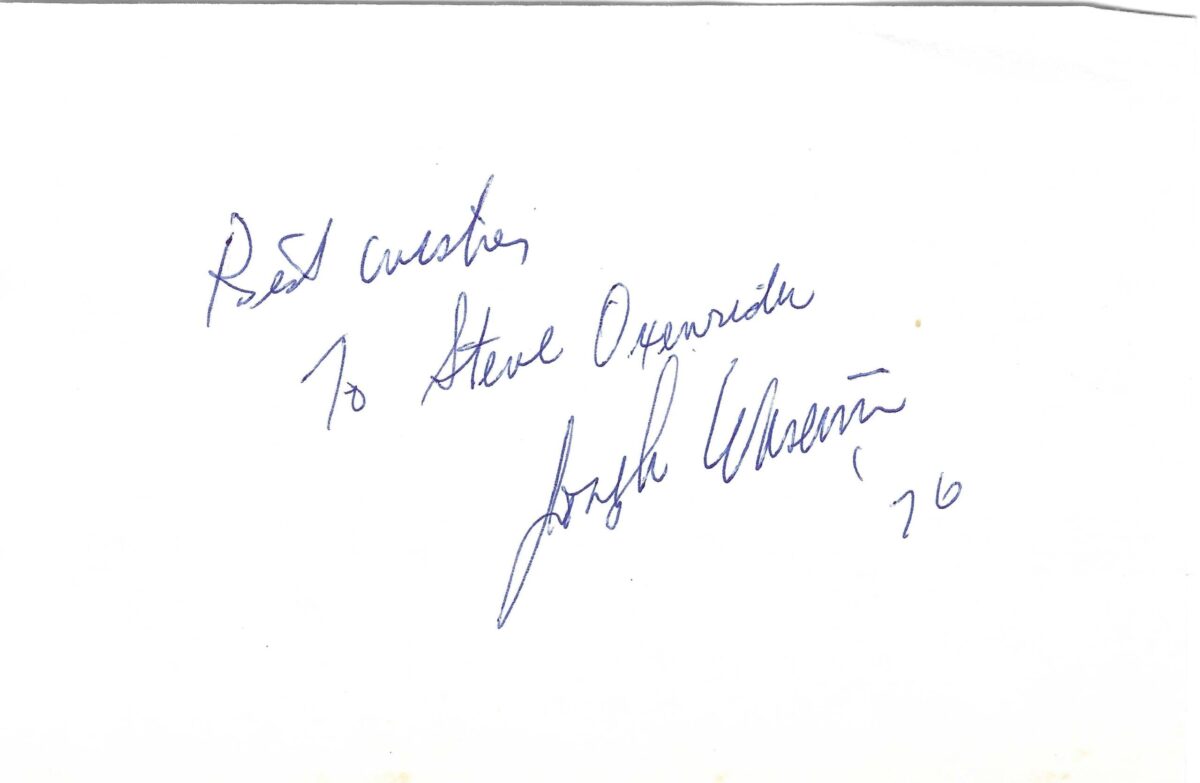 Best wishes
To Steve Oxenrider
Joseph
'76